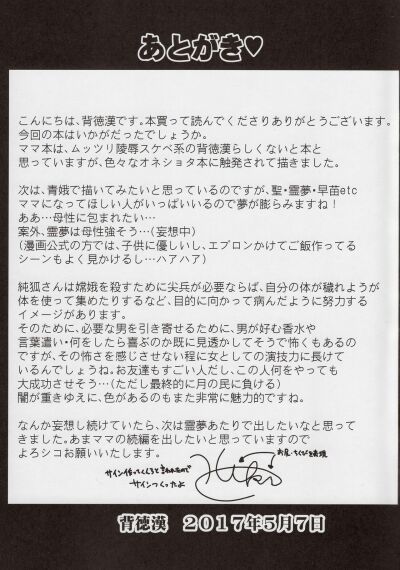 あとがき♡
こんにちは、背徳漢です。本買って読んでくださりありがとうございます。
今回の本はいかがだったでしょうか。
ママ本は、ムッツリ陵辱スケベ系の背徳漢らしくないと本と
思っていますが、色々なオネショタ本に触発されて描きました。
次は、青娥で描いてみたいと思っているのですが、聖・霊夢・早苗etc
ママになってほしい人がいっぱいいるので夢が膨らみますね！
ああ…母性に包まれたい…
案外、霊夢は母性強そう…（妄想中）
(漫画公式の方では、子供に優しいし、エプロンかけてご飯作ってる
シーンもよく見かけるし…ハアハア)
純狐さんは嫦娥を殺すために尖兵が必要ならば、自分の体が穢れようが
体を使って集めたりするなど、目的に向かって病んだように努力する
イメージがあります。
そのために、必要な男を引き寄せるために、男が好む香水や
言葉遣い・何をしたら喜ぶのか既に見透かしてそうで怖くもあるの
ですが、その怖さを感じさせない程に女としての演技力に長けて
いるんでしょうね。お友達もすごい人だし、この人何をやっても
大成功させそう…(ただし最終的に月の民に負ける)
闇が重きゆえに、色があるのもまた非常に魅力的ですね。
なんか妄想し続けていたら、次は霊夢あたりで出したいなと思って
きました。あまママの続編を出したいと思っていますので
よろシコお願いいたします。
サイン作ってくんろと言われたので
サインつくったよ
お尻・ちくびを表現
背徳漢　２０１７年５月７日